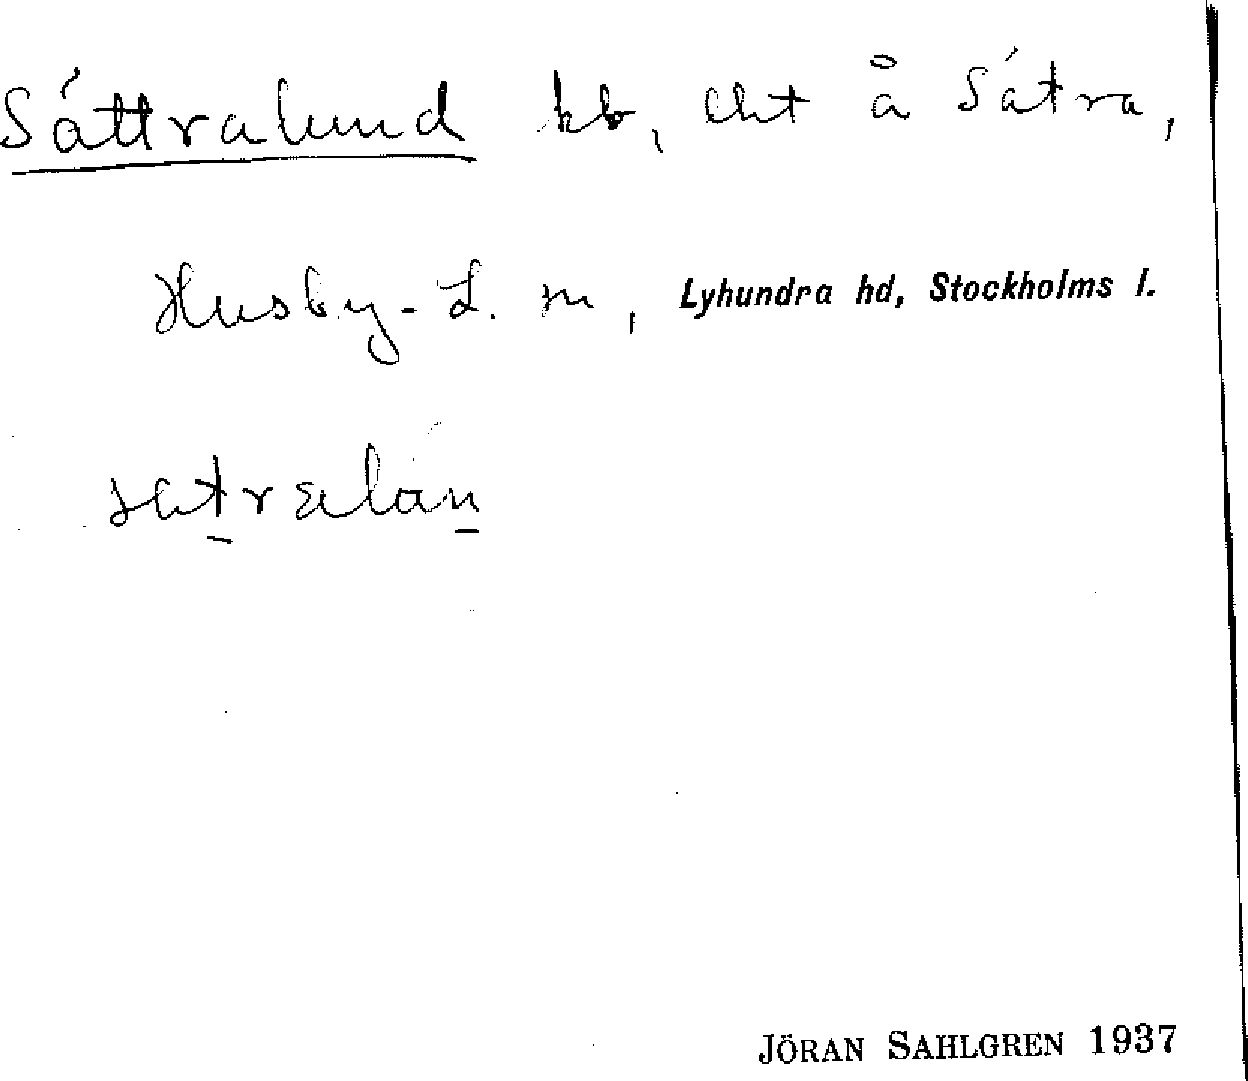 Sättralund kb, lht å Sätra,
Husby-L. sn, Lyhundra hd, Stockholms l.
JÖRAN SAHLGREN 1937